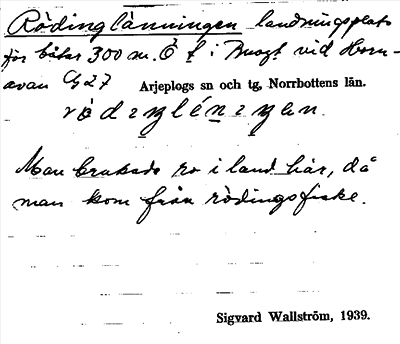 Rödinglänningen landningsplats
för båtar 300 m. Ö f i Buogt vid Horn-
avan C, 27 Arjeplogs sn och tg, Norrbottens län.
Man brukade ro i land här, då
man kom från rödingsfiske.
Sigvard Wallström, 1939.